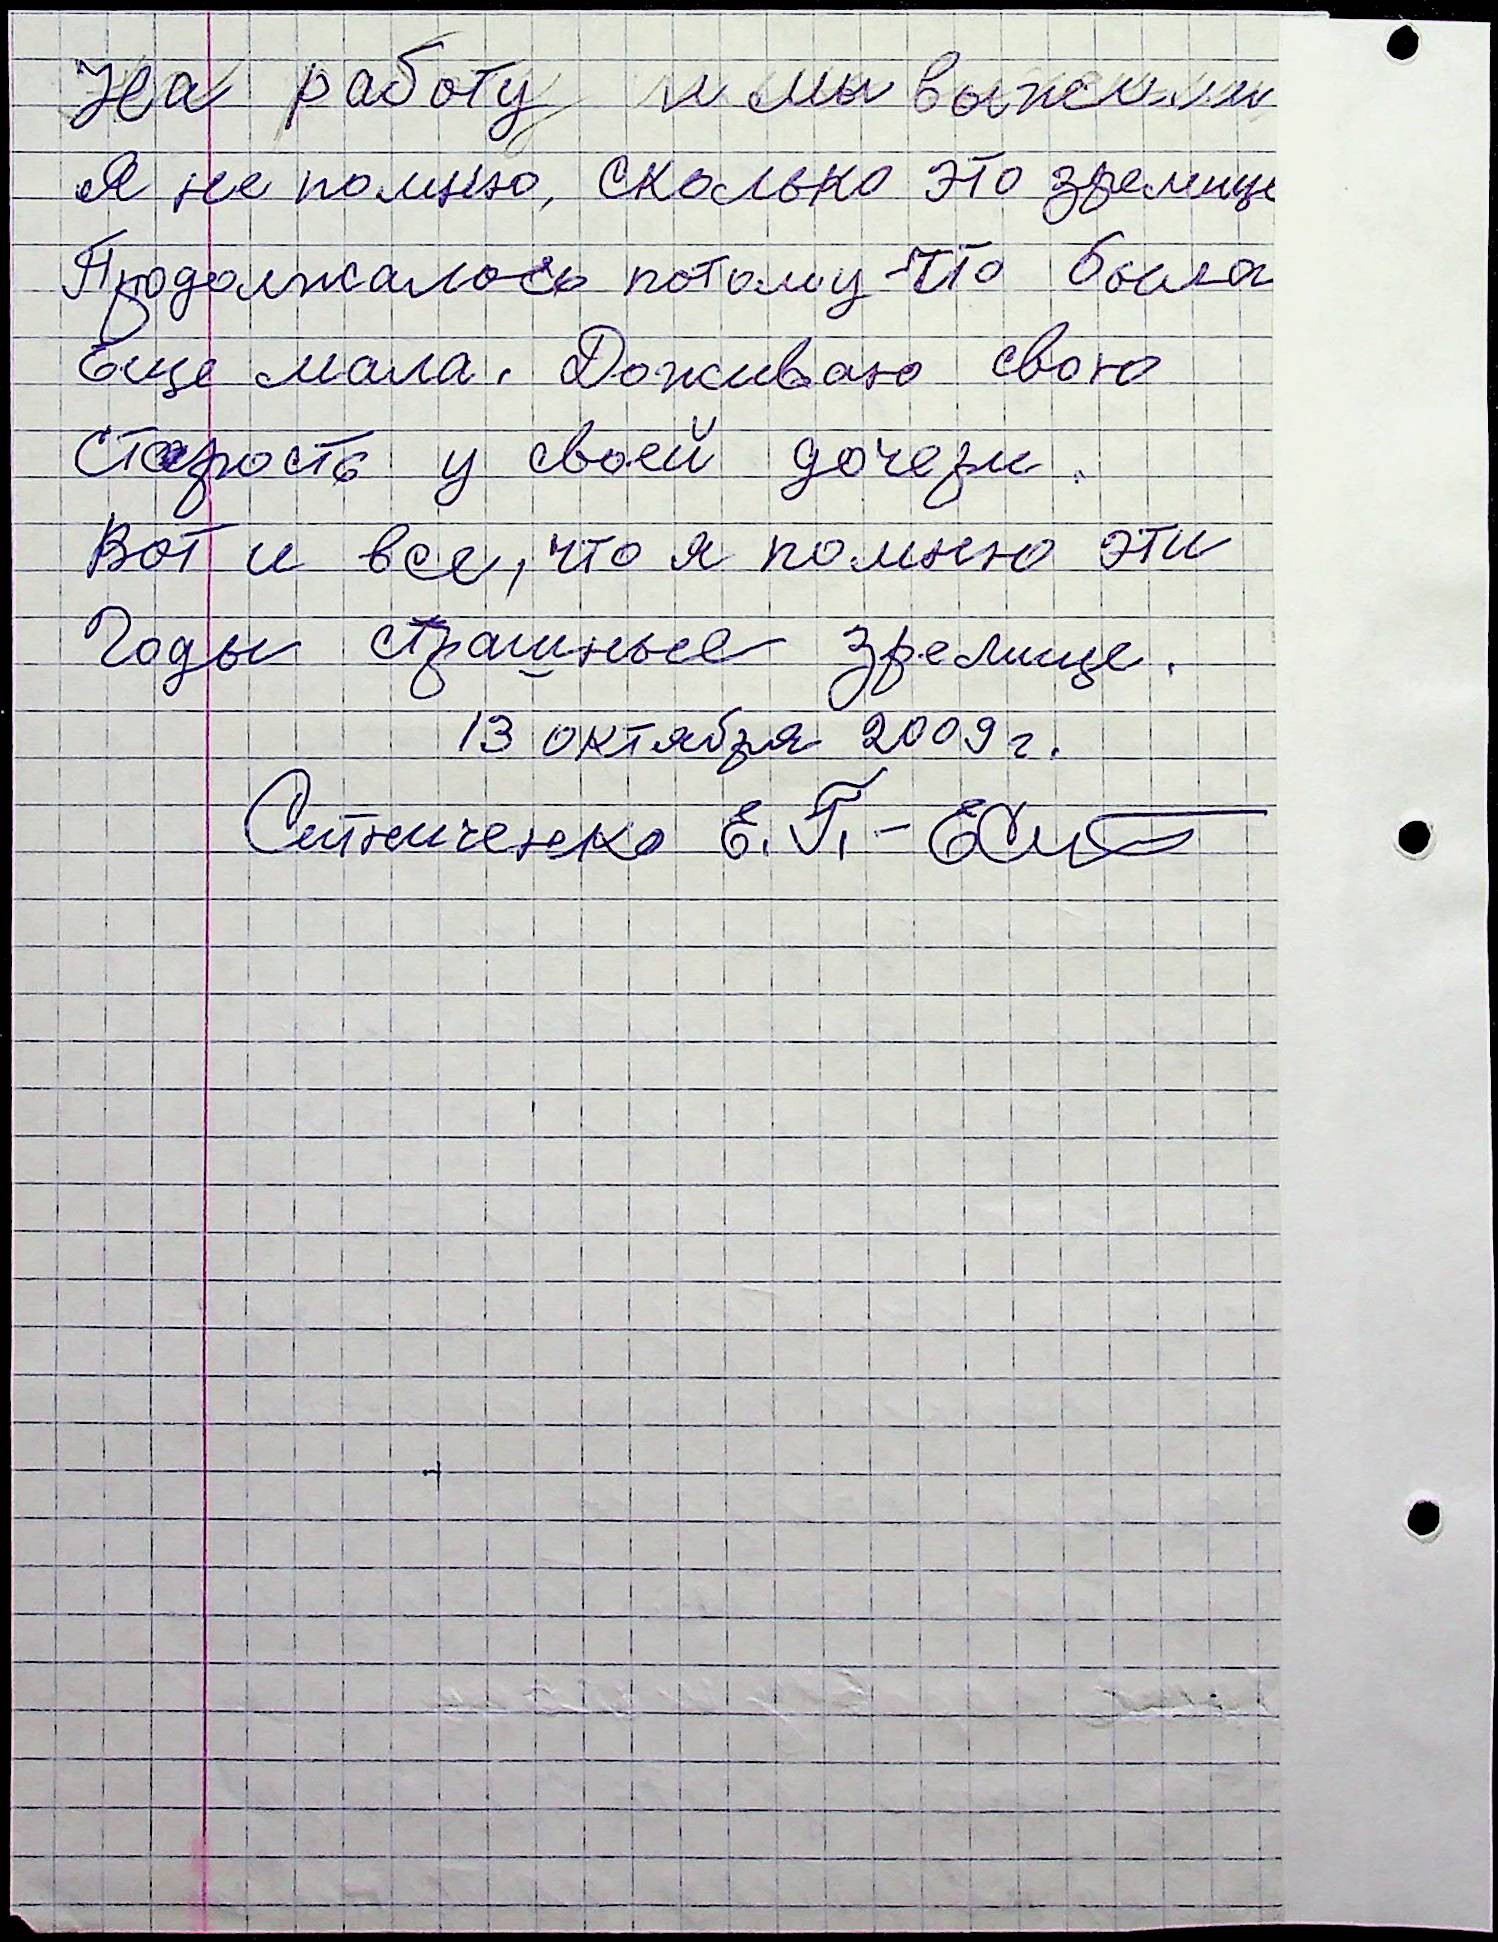 На работу и мы выжили
Я не помню, сколько это зрелище
Продолжалось потому-что была
Еще мала. Доживаю свою
Старость у своей дочери.
Вот и все, что я помню эти
Годы страшные зрелище.
13 октября 2009 г.
Ситниченко Е. П. - ЕСит